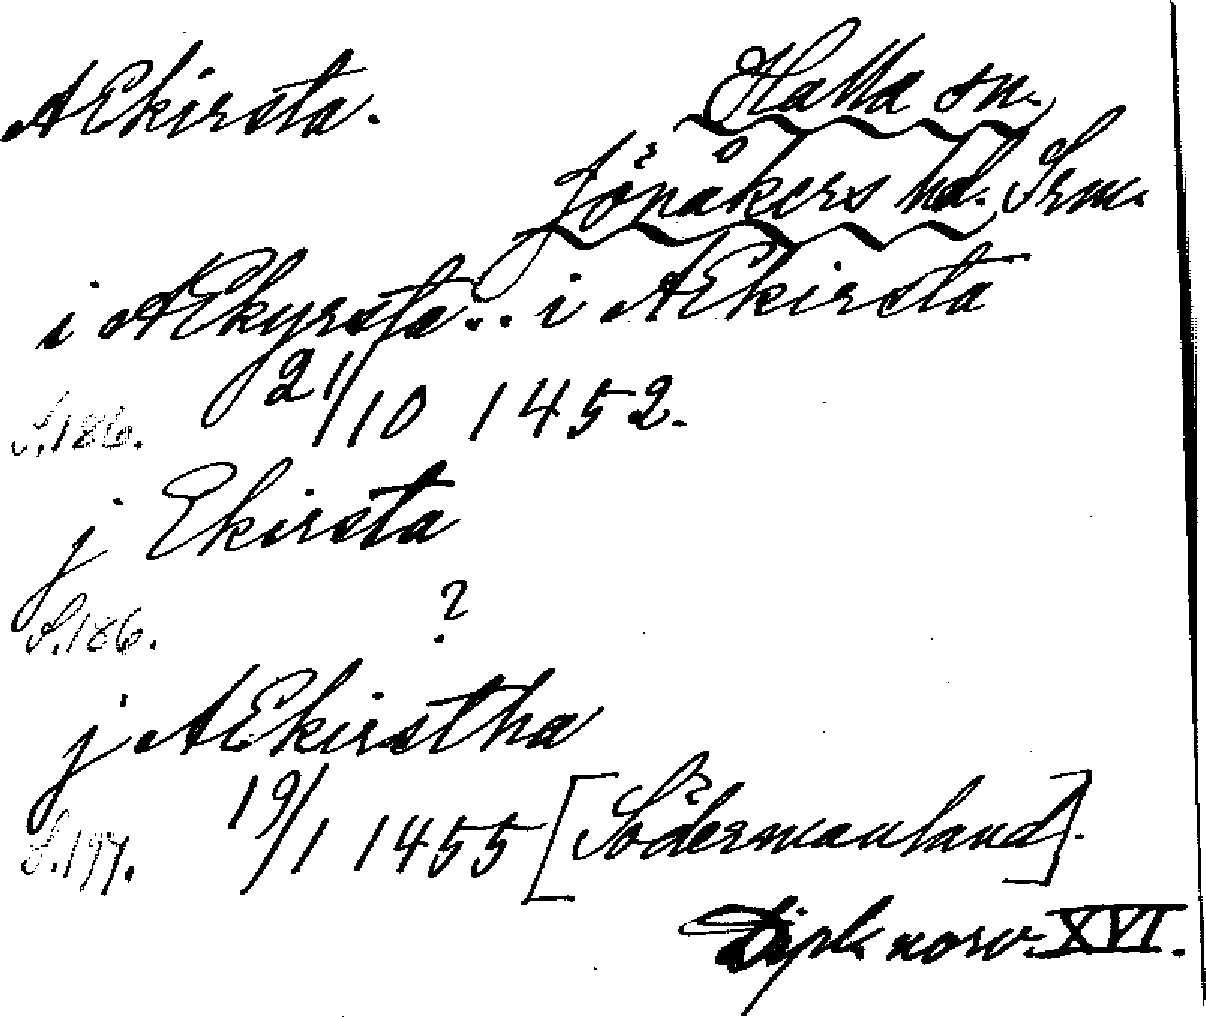 AEkirsta. Halla sn.
Jönåkers hd. Srm.
i AEkyrsta.. i AEkirsta
S.186. 21/10 1452.
j Ekirsta
S.186. ?
j AEkirstha
S.197. 19/1 1455 [Södermanland].
Dipl. norv. XVI.